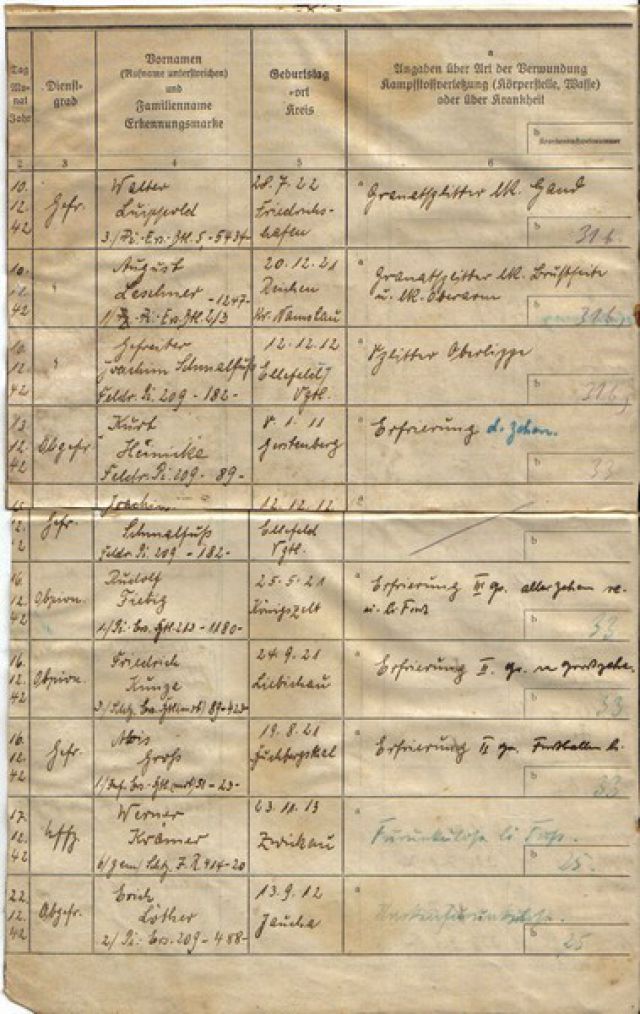 Tag
Mo-
nat
Jahr
Dienst-
grad
Vornamen
(Rufname unterstreichen)
und
Familienname
Erkennungsmarke
Geburtstag
-ort
Kreis
a
Angaben über Art der Verwundung
Kampfstoffverletzung (Körperstelle, Waffe)
oder über Krankheit
b
2 3 4 5 6
10.
12.
42
Gefr.
Walter
Luippold
28.7.22
Friedrichs-
hafen
a Granatsplitter lk. Hand
b 31 b
10.
12.
42
"
August
Leschner -1247-
20.12.21
Kr. Namslau
a Granatsplitter lk. Brustseite
u. lk. Oberarm
b 31b
10.
12.
42
"
Gefreiter
Joachim Schmalfuß
Feldr. Pi. 209 - 182 -
12.12.12
Ellefeld
Vgtl.
a Splitter Oberlippe
b 31b
13.
12.
42
Obgefr.
Kurt
Heinicke
Feldr. Pi. 209 - 89 -
1.11
Gerstenberg
a Erfrierung d. Zehen.
b 33
12.
2
Gefr.
Joachim
Schmalfuß
Feldr. Pi. 209 - 182 -
12.12.12
Ellefeld
Vgtl.
b
16.
12.
42
Obpion.
Rudolf
Fiebig
25.5.21
Königszelt
a Erfrierung III. Gr. aller Zehen re.
u. li Fuß
b 33
16.
12.
42
Obpion.
Friedrich
Kunze
24.9.21
Liebichau
a Erfrierung II. Gr.
b 33
16.
12.
42
Gefr.
Alois
Groß
19.8.21
a Erfrierung II Gr. Fußballen li.
b 33
17.
12.
42
Uffz.
Werner
Krämer
23.11.13
Zwickau
a Furunkulose li Fuß.
b 25.
22.
12.
42
Obgefr.
Erich
Löther
2/ Pi. Ers. 209 - 488 -
13.9.12
Taucha
a
b 25